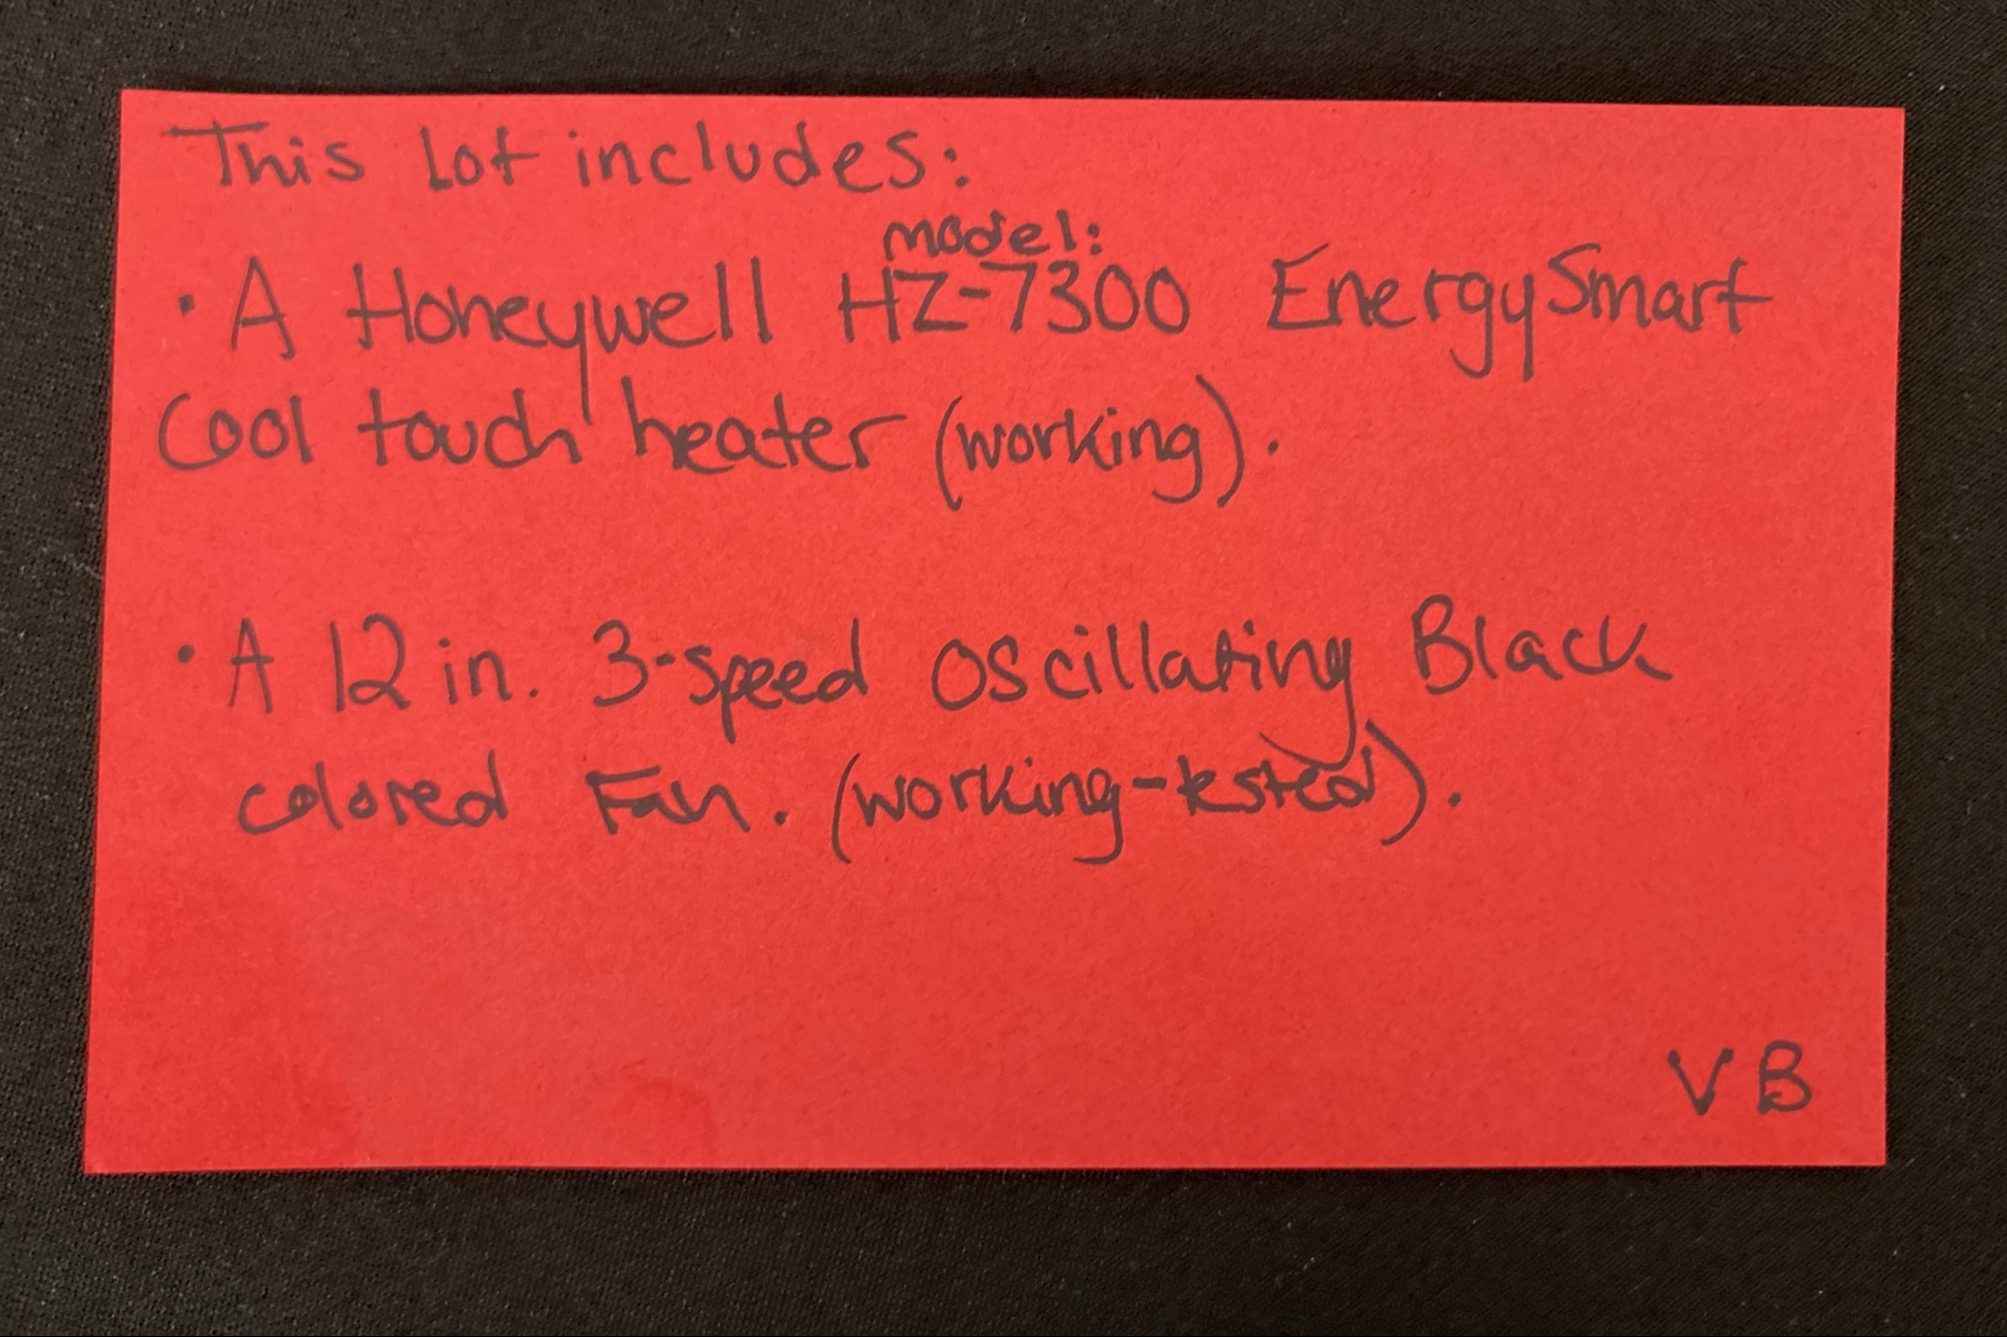 This Lot includes:
model:
• A Honeywell HZ-7300 EnergySmart
Cool touch heater (working).
• A 12 in. 3-speed Oscillating Black
colored Fan. (working-tested).
VB